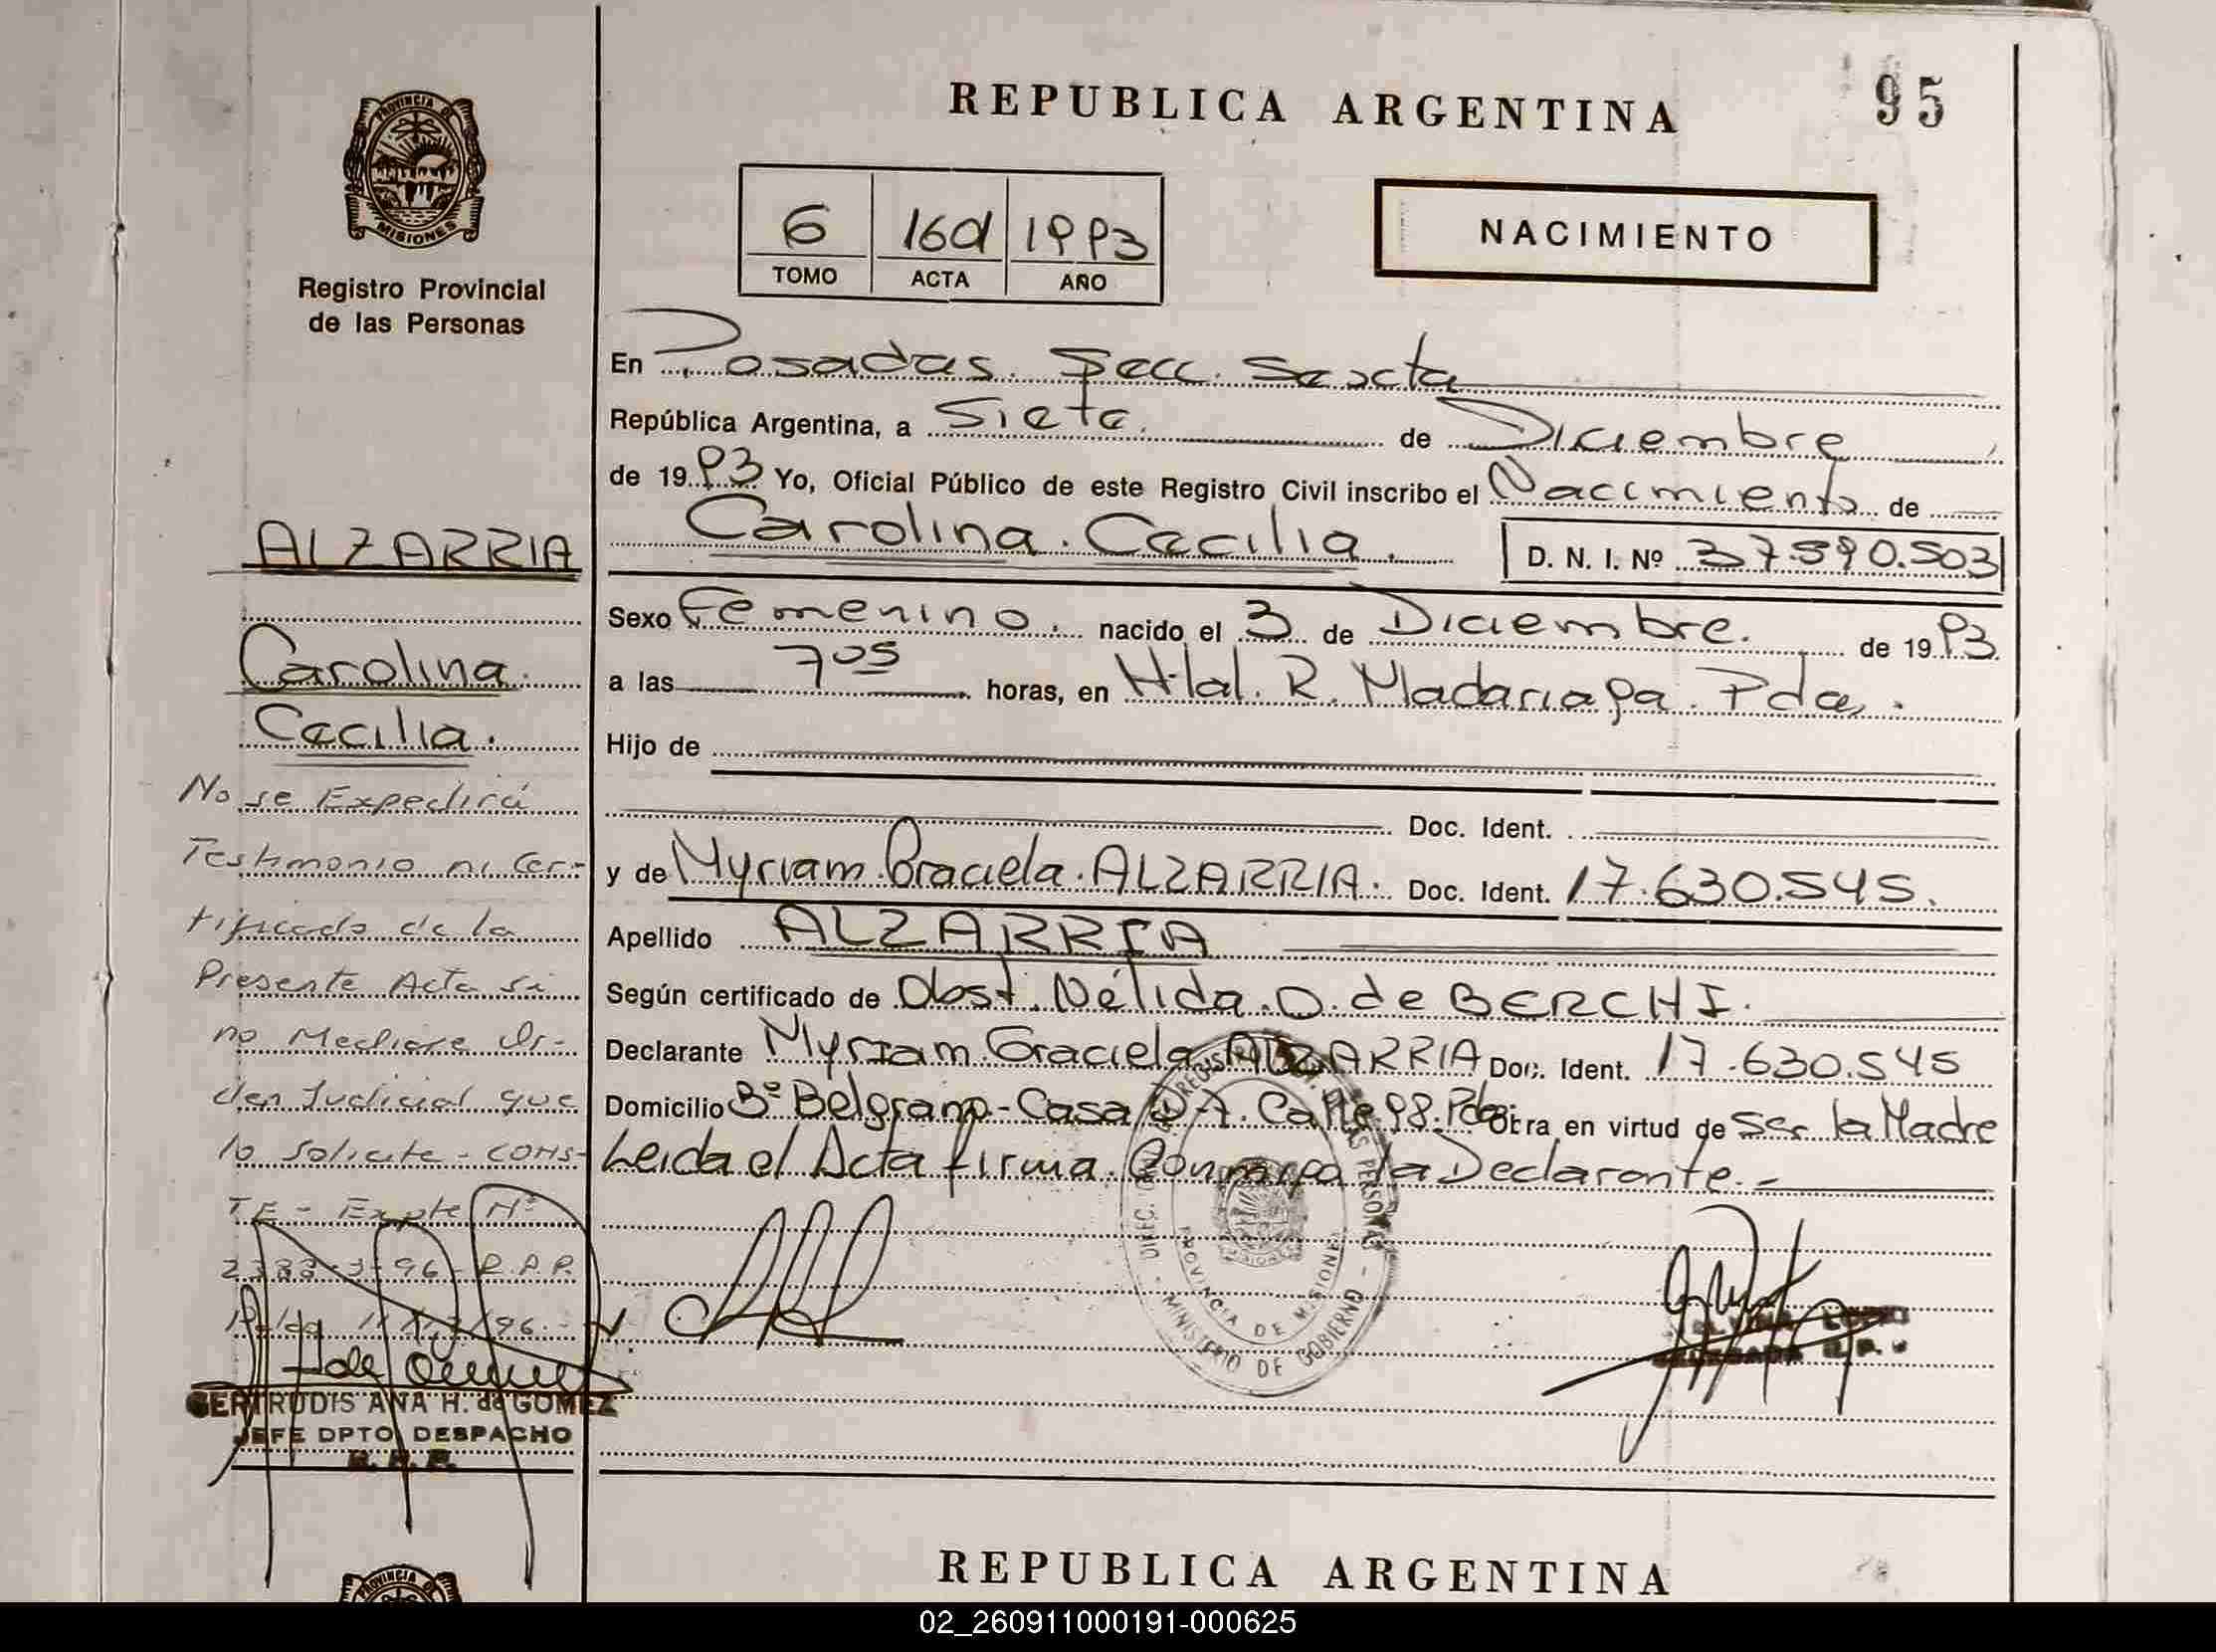 REPUBLICA ARGENTINA
95
PROVINCIA DE
MISIONES
Registro Provincial
de las Personas
6 1993
TOMO ACTA AÑO
NACIMIENTO
En Posadas. Secc. Sexta
República Argentina, a Siete. de Diciembre
de 1993 Yo, Oficial Público de este Registro Civil inscribo el Nacimiento de
Carolina. Cecilia. D. N. I. Nº 37.590.503
Sexo Femenino. nacido el 3 de Diciembre. de 1993.
a las 7 05 horas, en H-lal. R. Madariaga. Pdas.
Hijo de
Doc. Ident.
y de Myriam Graciela. ALZARRIA. Doc. Ident. 17.630.545.
Apellido ALZARRIA
Según certificado de Obst. Nélida. O. de BERCHI.
Declarante Myriam. Graciela ALZARRIA Doc. Ident. 17.630.545
Domicilio Bº Belgrano - Casa Calle 98. Obra en virtud de Ser la Madre
Leida el Acta firma. Conmigo la Declarante.-
ALZARRIA
Carolina.
Cecilia.
No se Expedirá
Testimonio ni Cer-
tificado de la
Presente Acta si
no Mediare Or-
den Judicial que
lo Solicite - CONS-
TE - Expte Nº
96 - R.P.P.
GERTRUDIS ANA H. de GOMEZ
JEFE DPTO. DESPACHO
R. P. P.
PROVINCIA DE MISIONES
MINISTERIO DE GOBIERNO
REPUBLICA ARGENTINA
PROVINCIA DE
02_260911000191-000625